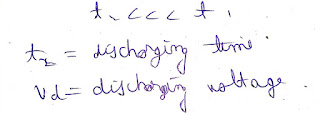 t₂ <<< t₁
t₂ = discharging time.
Vd = discharging voltage.